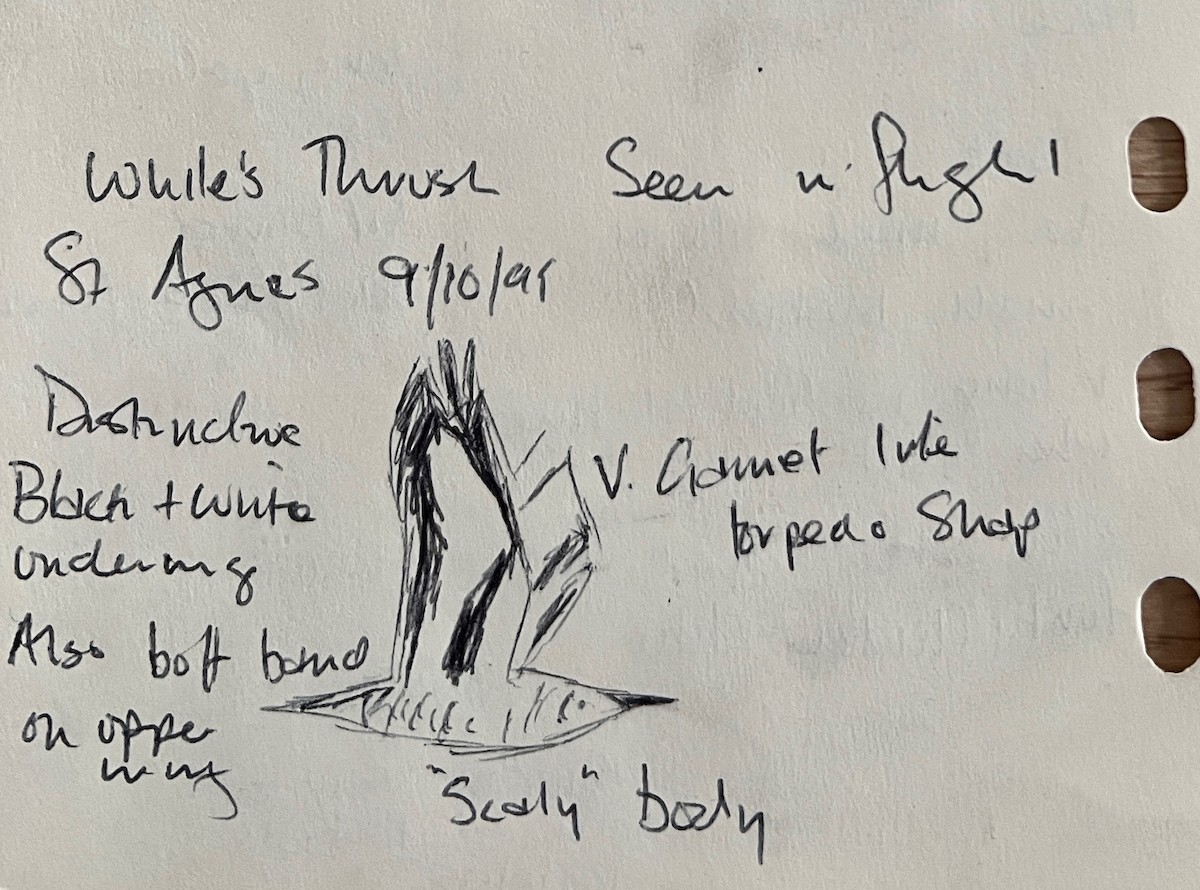 White's Thrush Seen in flight
St Agnes 9/10/99
Distinctive
Black + white
underwing
Also buff band
on upper
wing
V. Gannet like
torpedo Shap
"Scaly" body